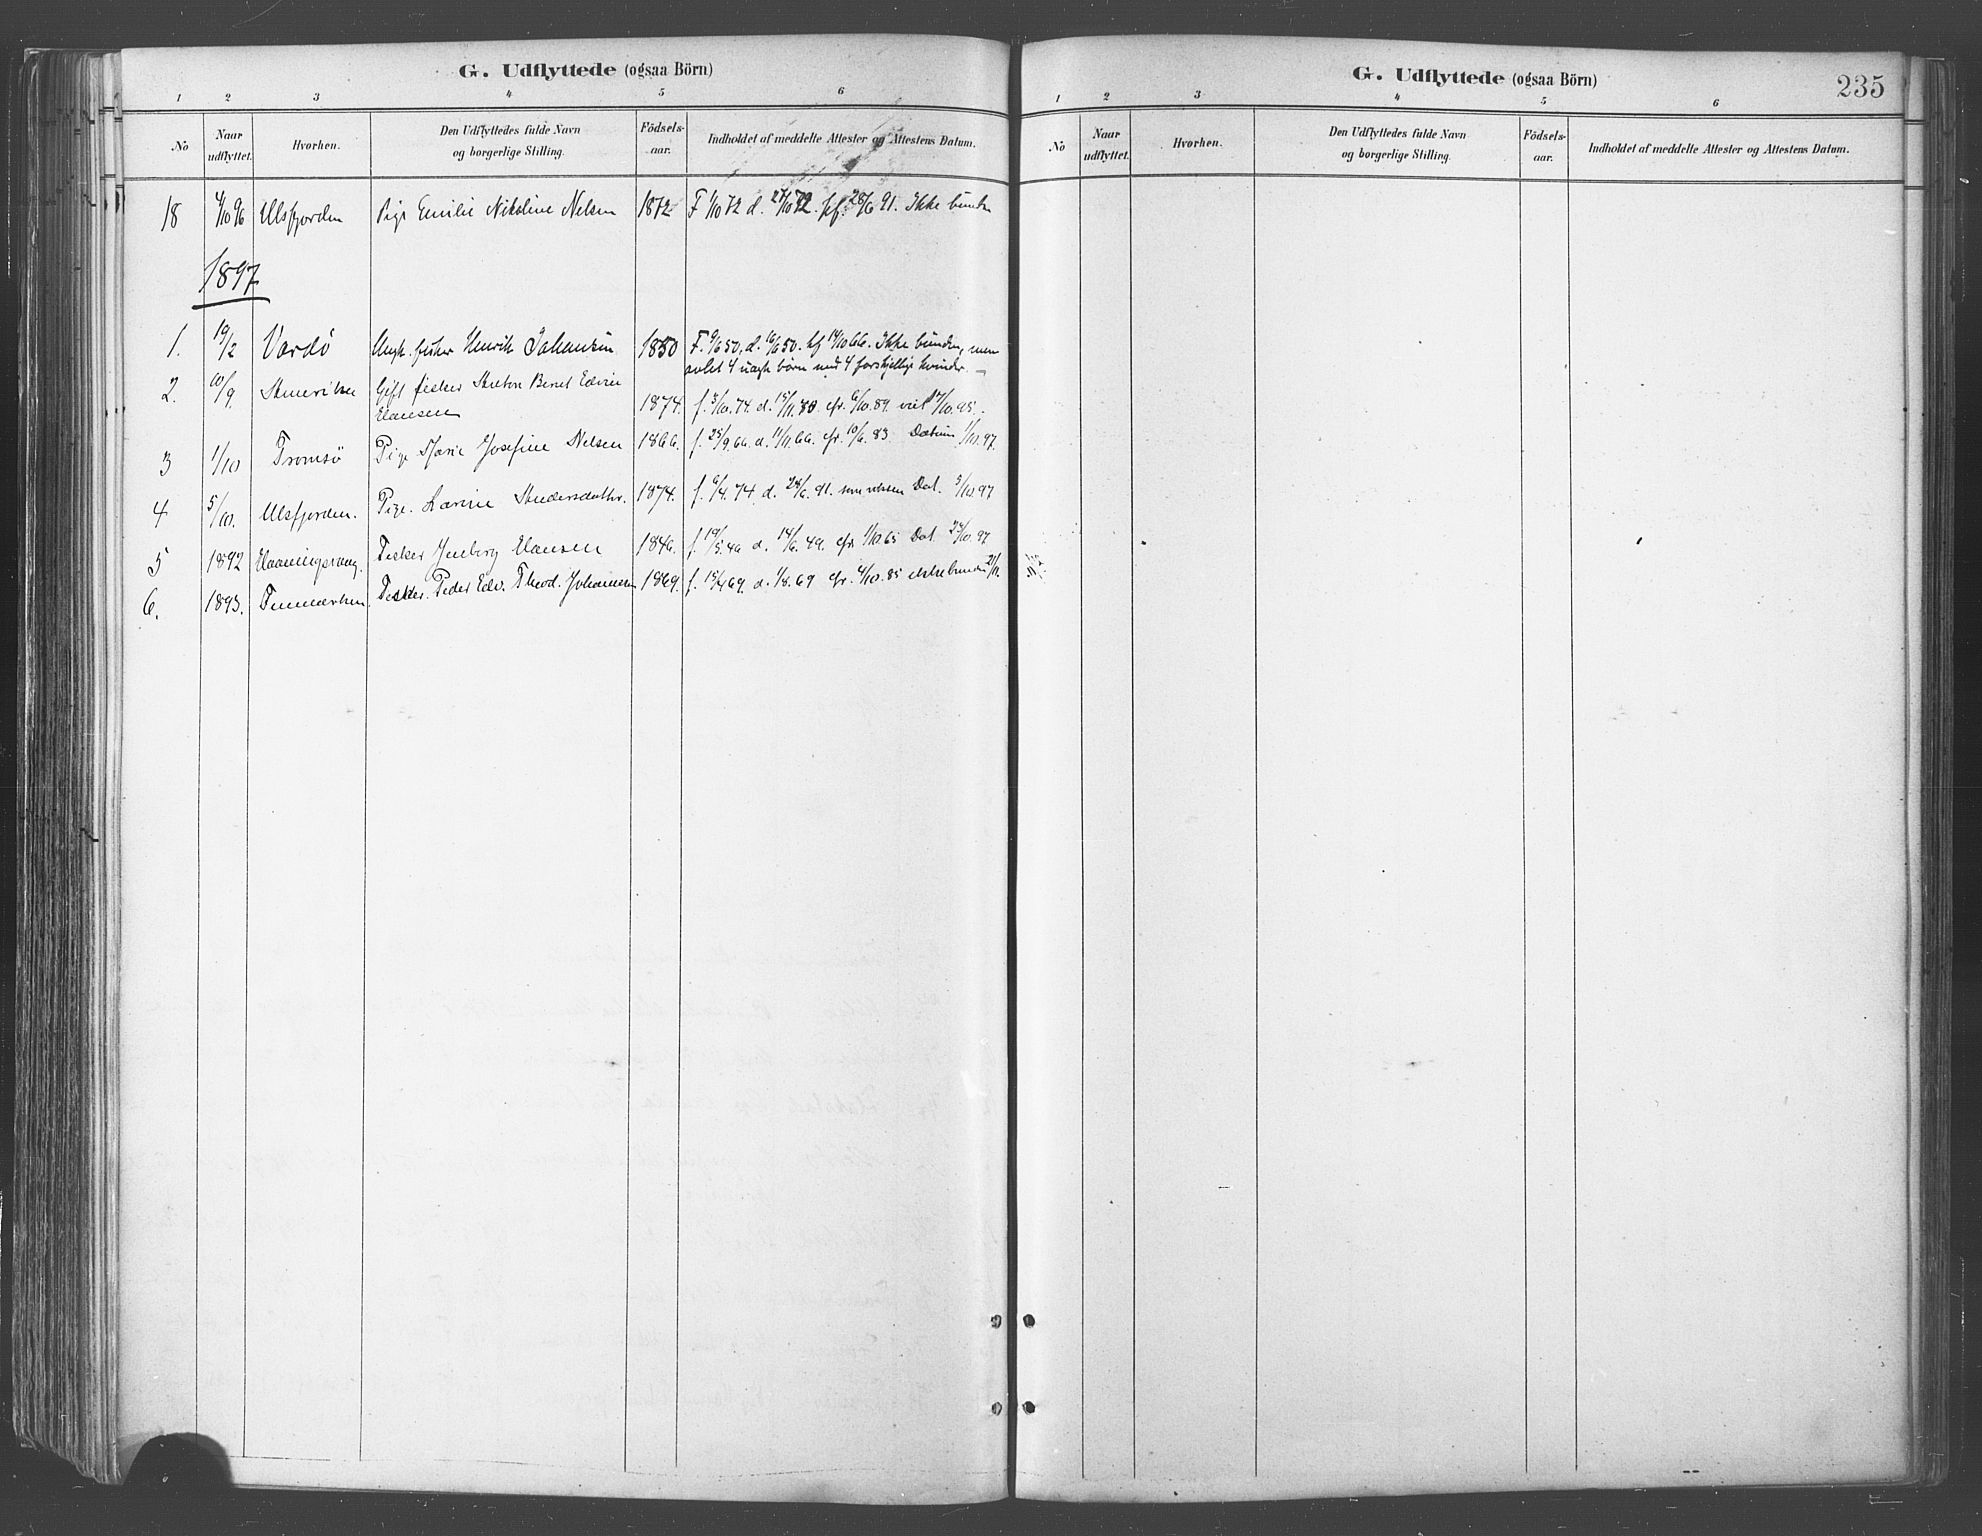 G. Udflyttede (ogsaa Börn)
1 2 3 4 5 6
No Naar udflyttet. Hvorhen. Den Udflyttedes fulde Navn og borgerlige Stilling. Födsels-aar. Indholdet af meddelte Attester og Attestens Datum.
18 4/10 96 Ulsfjorden Pige Emilie Nikoline Nelsen 1872 F 1/10 72 d. 27/10 72. kf. 28/6 91. Ikke bunden
1897
1. 19/2 Vardö Ungk. fisker Henrik Johansen 1850 F. 9/6 50, d. 16/6 50. kf 14/10 66. Ikke bunden, men
avlet 4 uægte börn med 4 forskjellige kvinder.
2. 10/9 Amerika Gift fisker Anton Bernt Edvin
Hansen 1874. f. 3/10. 74. d. 15/11. 80. cfr. 6/10. 89. viet 17/10. 95.
3 1/10 Tromsö Pige Marie Josefine Nelsen 1866. f. 25/9. 66. d. 11/11. 66. cfr. 10/6. 83. Datum 1/10. 97.
4 5/10. Ulsfjorden. Pige. Larine Andersdatter. 1874. f. 6/4. 74 d. 28/6. 91. Dat. 5/10. 97
5 1892 Honningsvaag. Fisker Jenberg Hansen 1846. f. 19/5. 46 d. 14/6. 49. cfr 1/10. 65 Dat. 25/10. 97
6. 1893. Finmarken. Fisker. Peder Edv. Theod. Johannesen 1869. f. 15/4 69. d. 1/8. 69 cfr. 4/10. 85 ikke bunden 21/11.
G. Udflyttede (ogsaa Börn) 235
1 2 3 4 5 6
No Naar udflyttet. Hvorhen. Den Udflyttedes fulde Navn og borgerlige Stilling. Födsels-aar. Indholdet af meddelte Attester og Attestens Datum.